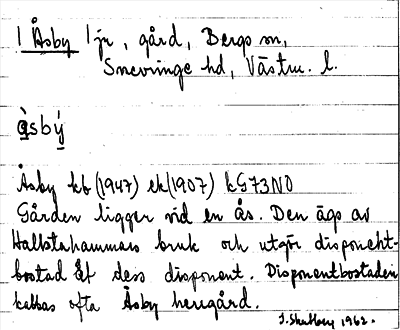 | Åsby | jr, gård, Bergs sn,
Snevringe hd, Västm. l.
åsbý
Åsby kb (1947) ek (1907) kG73NO
Gården ligger vid en ås. Den ägs av
Hallstahammars bruk och utgör disponent-
bostad åt dess disponent. Disponentbostaden
kallas ofta Åsby herrgård.
1962.